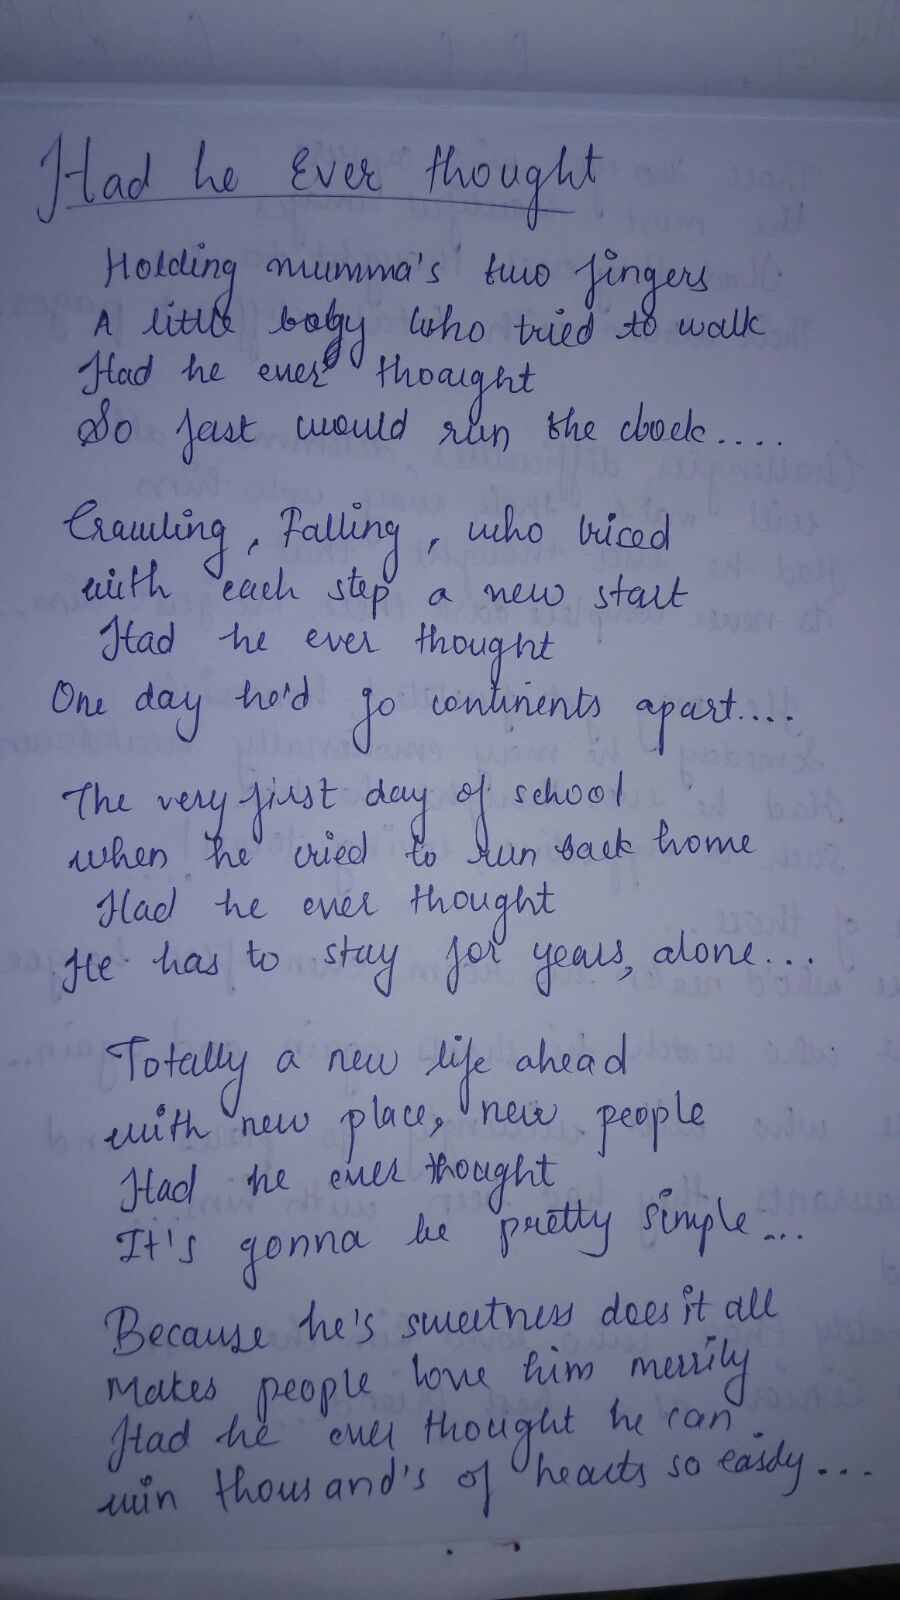 Had he Ever thought
Holding mumma's two fingers
A little baby who tried to walk
Had he ever thought
So fast would run the clock....
Crawling, Falling, who tried
with each step a new start
Had he ever thought
One day he'd go continents apart....
The very first day of school
when he cried to run back home
Had he ever thought
He has to stay for years, alone...
Totally a new life ahead
with new place, new people
Had he ever thought
It's gonna be pretty simple...
Because he's sweetness does it all
Makes people love him merrily
Had he ever thought he can
win thousand's of hearts so easily...